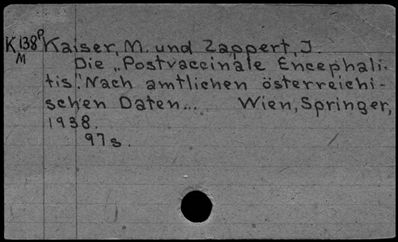 K138P Kaiser, M. und Zappert, J.
M
Die „Postvaccinale Encephali-
tis". Nach amtlichen österreichi-
schen Daten... Wien, Springer,
1938.
97s.